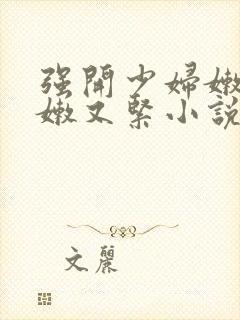 强開少婦嫩
嫩又緊小說
文麗